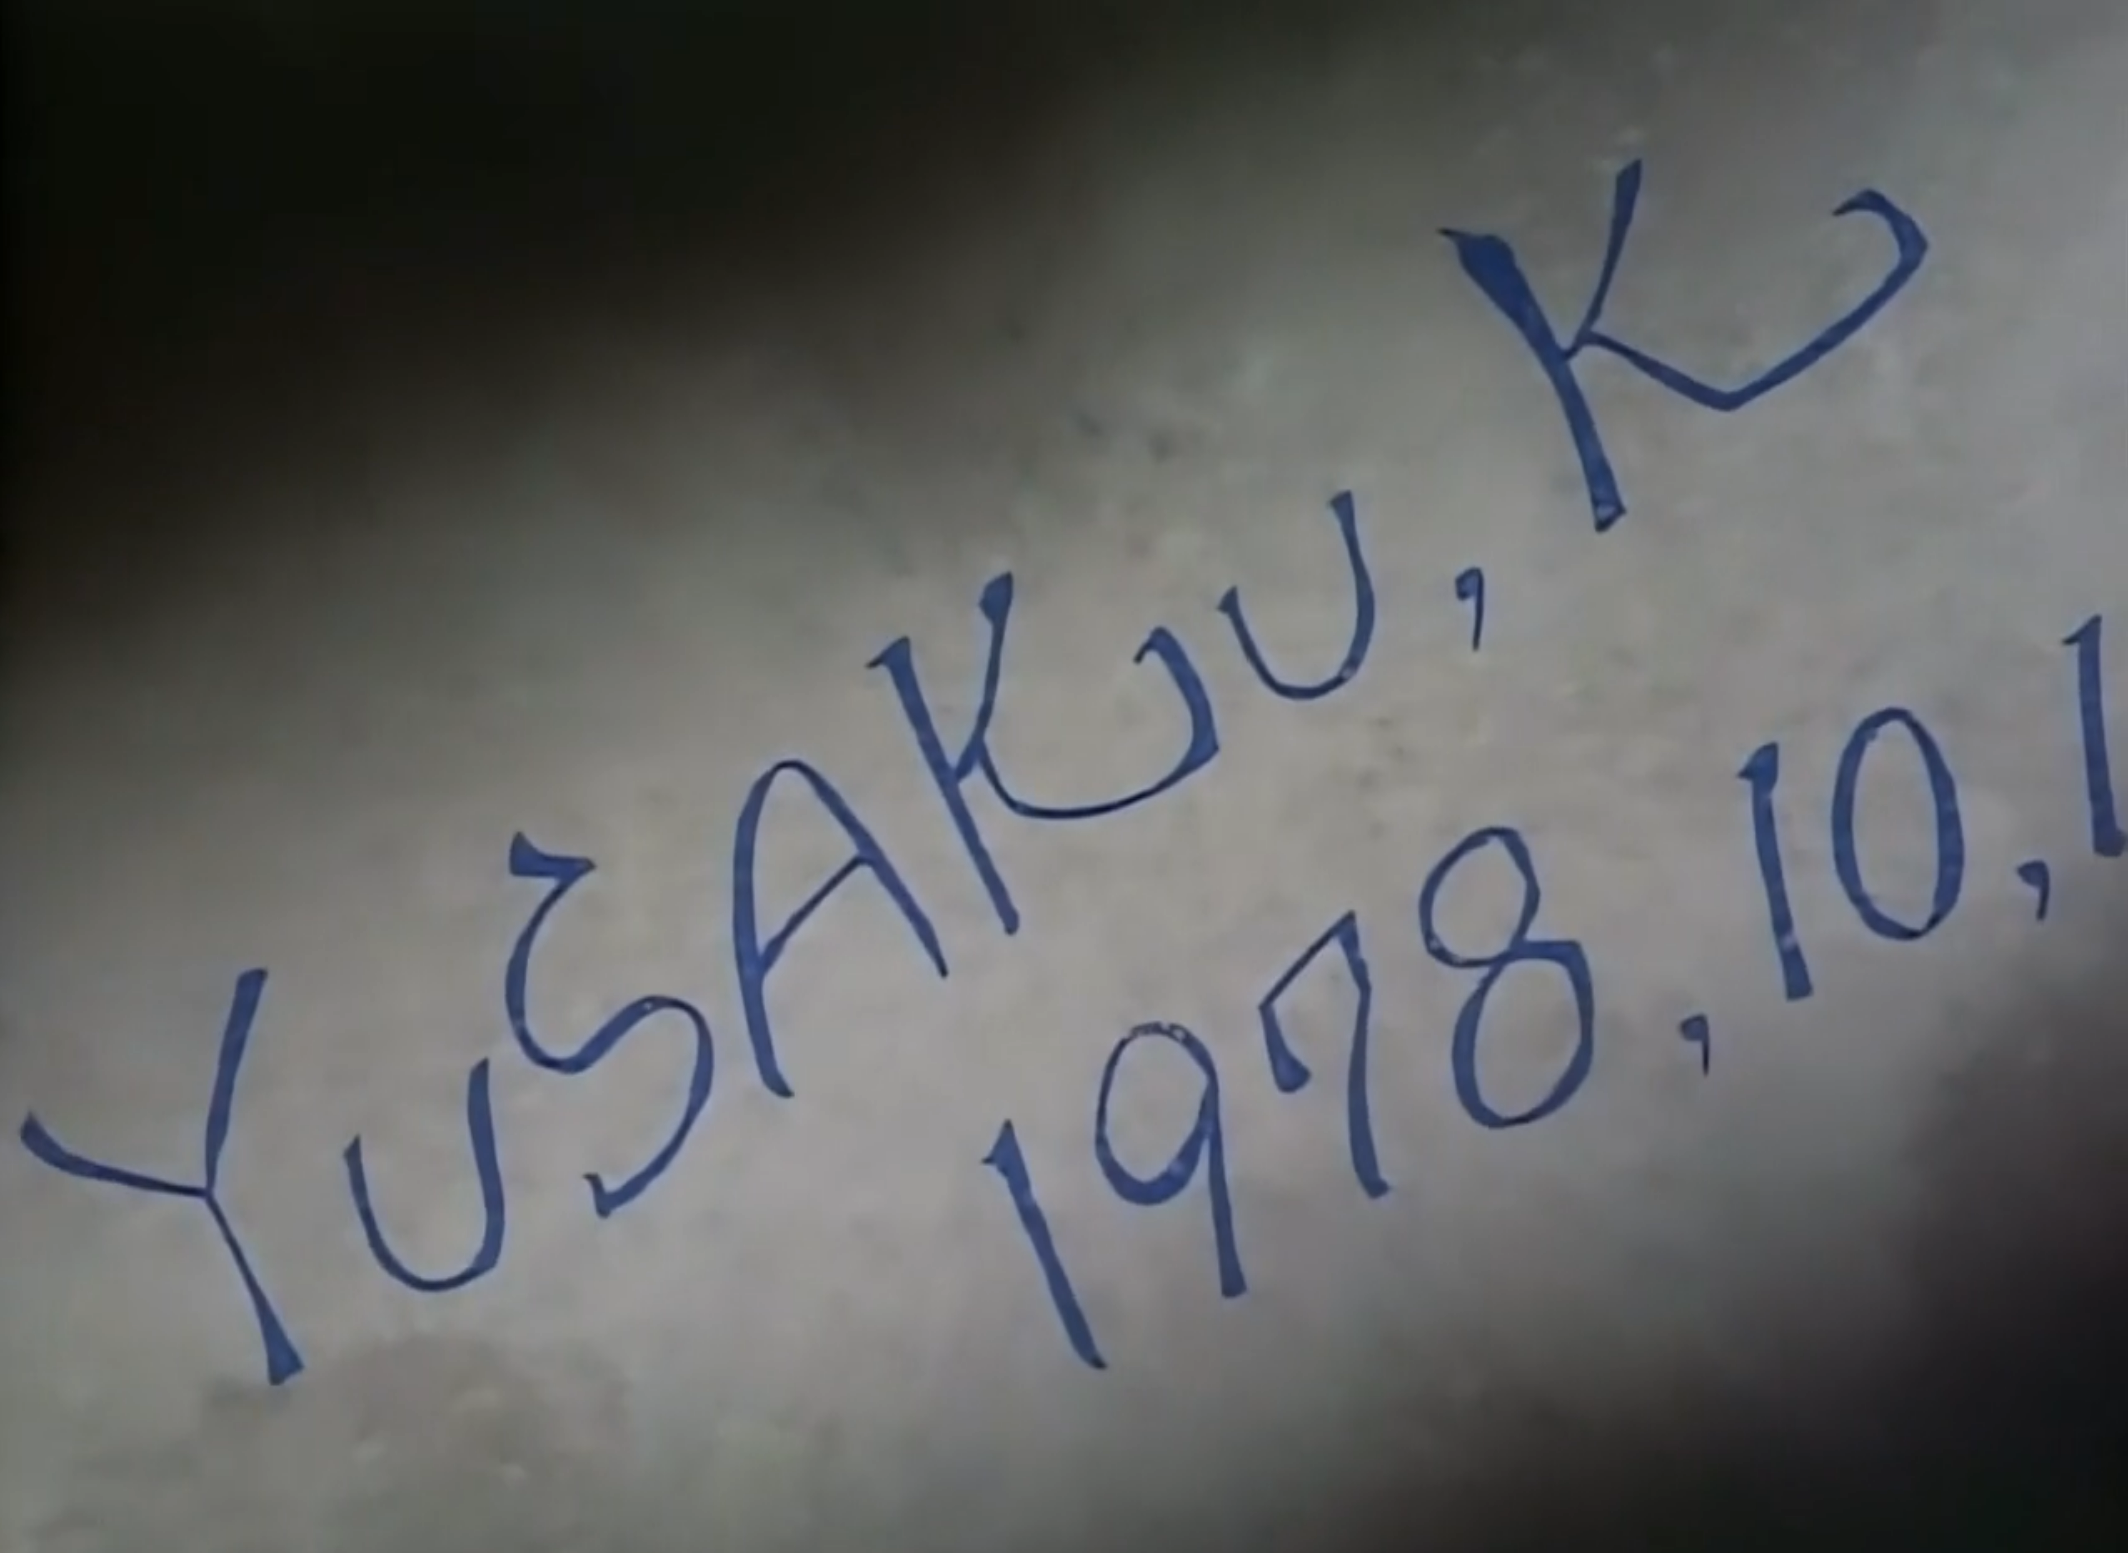 YUSAKU, K
1978, 10, 1